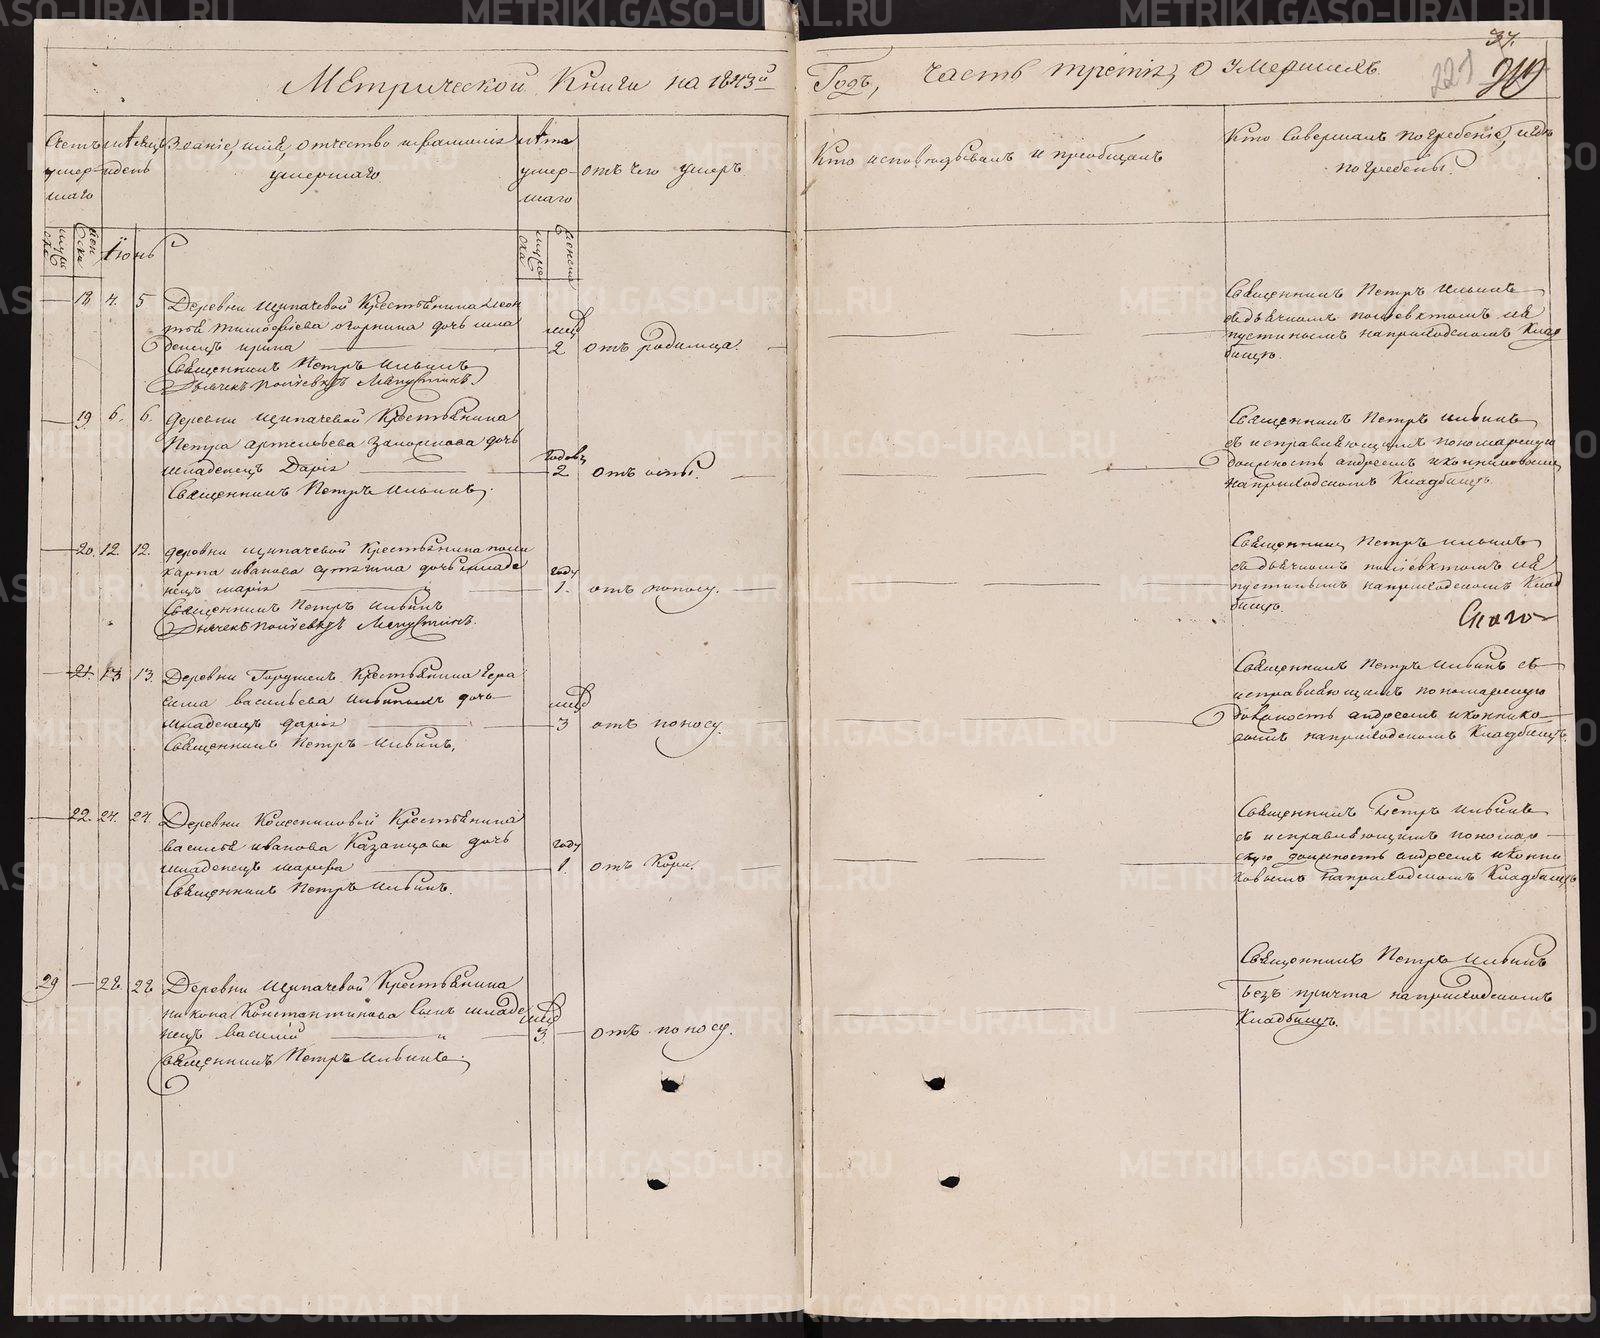 Метрической Книги на 1843й
Годъ, часть третія, о умершихъ.
37.
221
Счетъ умер-шаго
мѣсяцъ и день
Званіе, имя, отчество и фамилія умершаго.
лѣта умер-шаго
отъ чего умеръ
Кто исповѣдывалъ и пріобщалъ
Кто Совершалъ погребеніе, и гдѣ погребены.
муж ска
жен ска
Іюнь
муже ска
женска
18 4. 5
Деревни Щипачевой Крестьянина Леон
тья Тимофѣева Огорнина дочь мла
денецъ Ирина
Священникъ Петръ Ильинъ
Дьячекъ Полиевктъ Мапустинъ.
мцъ 2
отъ родимца.
Священникъ Петръ Ильинъ
съ дьячкомъ Полиевктомъ Ма
пустинымъ на приходскомъ Клад
бищѣ.
19 6. 6.
Деревни Щипачевой Крестьянина
Петра Артемьева дочь
младенецъ Дарія
Священникъ Петръ Ильинъ.
годовъ 2
отъ оспы.
Священникъ Петръ Ильинъ
съ исправляющимъ пономарскую
должность Андреемъ Иконниковымъ
на приходскомъ Кладбищѣ.
20. 12. 12.
деревни Щипачевой Крестьянина Поли
карпа Иванова дочь младе
нецъ Марія
Священникъ Петръ Ильинъ
Дьячекъ Полиевктъ Мапустинъ.
году 1.
отъ поносу.
Священникъ Петръ Ильинъ
съ дьячкомъ Полиевктомъ Ма
пустинымъ на приходскомъ Клад
бищѣ.
21. 13 13.
Деревни Горушекъ Крестьянина Гера
сима Васильева Ильиныхъ дочь
младенецъ Дарія
Священникъ Петръ Ильинъ.
мцъ 3
отъ поносу.
Священникъ Петръ Ильинъ съ
исправляющимъ пономарскую
должность Андреемъ Иконнико
вымъ на приходскомъ Кладбищѣ.
22. 24. 24.
Деревни Крестьянина
Василья Иванова Казанцова дочь
младенецъ Марфа
Священникъ Петръ Ильинъ.
году 1.
отъ Кори.
Священникъ Петръ Ильинъ
съ исправляющимъ пономар
скую должность Андреемъ Иконни
ковымъ на приходскомъ Кладбищѣ
29 — 28. 28
Деревни Щипачевой Крестьянина
Никона Константинова сынъ младе
нецъ Василій
Священникъ Петръ Ильинъ.
мцъ 3.
отъ поносу.
Священникъ Петръ Ильинъ
безъ причта на приходскомъ
Кладбищѣ.
METRIKI.GASO-URAL.RU